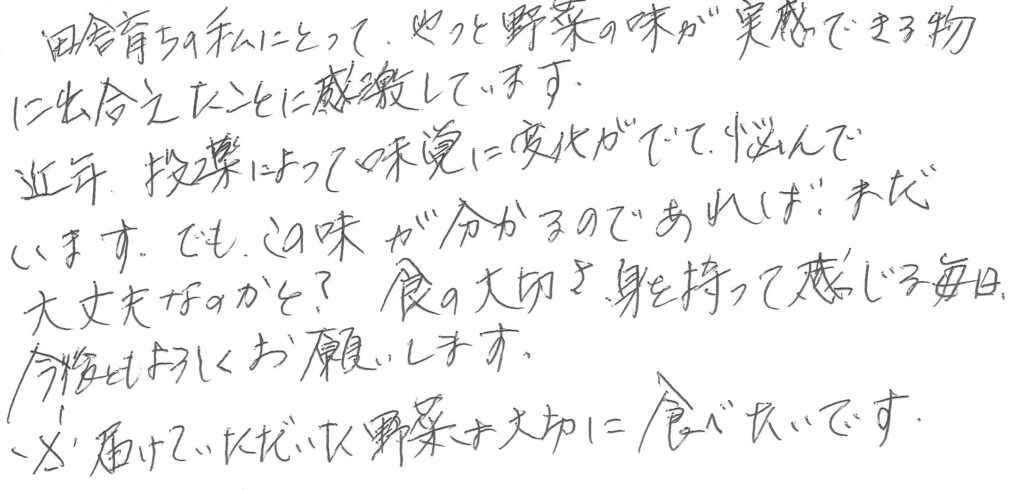 田舎育ちの私にとって、やっと野菜の味が実感できる物
に出合えたことに感激しています。
近年、投薬によって味覚に変化がでて、悩んで
います。でも、この味が分かるのであれば、まだ
大丈夫なのかと? 食の大切さ、身を持って感じる毎日、
今後ともよろしくお願いします。
※ 届けていただいた野菜は大切に食べたいです。